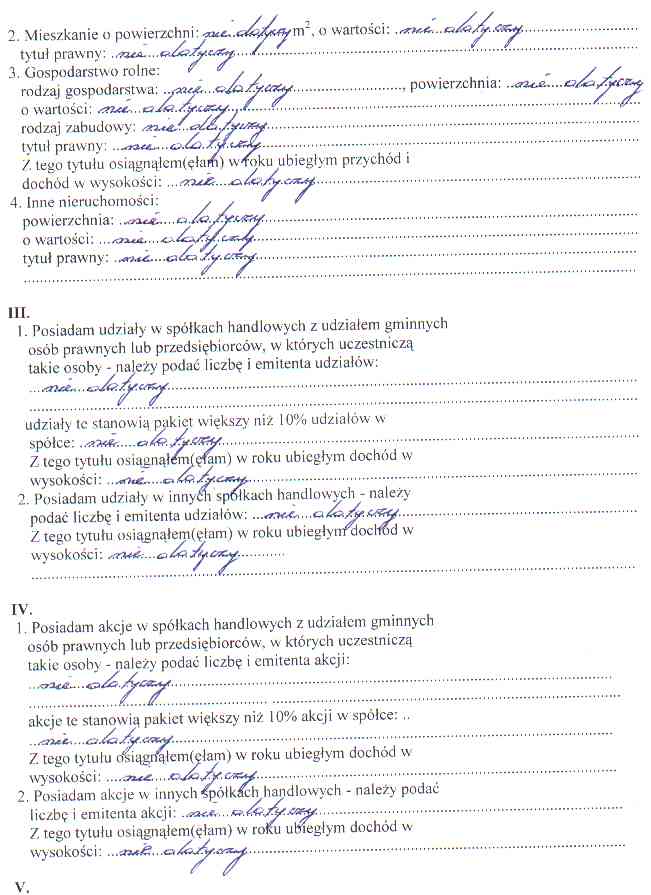 2. Mieszkanie o powierzchni: nie dotyczy m², o wartości: nie dotyczy
tytuł prawny: nie dotyczy
3. Gospodarstwo rolne:
rodzaj gospodarstwa: nie dotyczy, powierzchnia: nie dotyczy
o wartości: nie dotyczy
rodzaj zabudowy: nie dotyczy
tytuł prawny: nie dotyczy
Z tego tytułu osiągnąłem(ęłam) w roku ubiegłym przychód i
dochód w wysokości: nie dotyczy
4. Inne nieruchomości:
powierzchnia: nie dotyczy
o wartości: nie dotyczy
tytuł prawny: nie dotyczy
III.
1. Posiadam udziały w spółkach handlowych z udziałem gminnych
osób prawnych lub przedsiębiorców, w których uczestniczą
takie osoby - należy podać liczbę i emitenta udziałów:
nie dotyczy
udziały te stanowią pakiet większy niż 10% udziałów w
spółce: nie dotyczy
Z tego tytułu osiągnąłem(ęłam) w roku ubiegłym dochód w
wysokości: nie dotyczy
2. Posiadam udziały w innych spółkach handlowych - należy
podać liczbę i emitenta udziałów: nie dotyczy
Z tego tytułu osiągnąłem(ęłam) w roku ubiegłym dochód w
wysokości: nie dotyczy
IV.
1. Posiadam akcje w spółkach handlowych z udziałem gminnych
osób prawnych lub przedsiębiorców, w których uczestniczą
takie osoby - należy podać liczbę i emitenta akcji:
nie dotyczy
akcje te stanowią pakiet większy niż 10% akcji w spółce: ..
nie dotyczy
Z tego tytułu osiągnąłem(ęłam) w roku ubiegłym dochód w
wysokości: nie dotyczy
2. Posiadam akcje w innych spółkach handlowych - należy podać
liczbę i emitenta akcji: nie dotyczy
Z tego tytułu osiągnąłem(ęłam) w roku ubiegłym dochód w
wysokości: nie dotyczy
V.